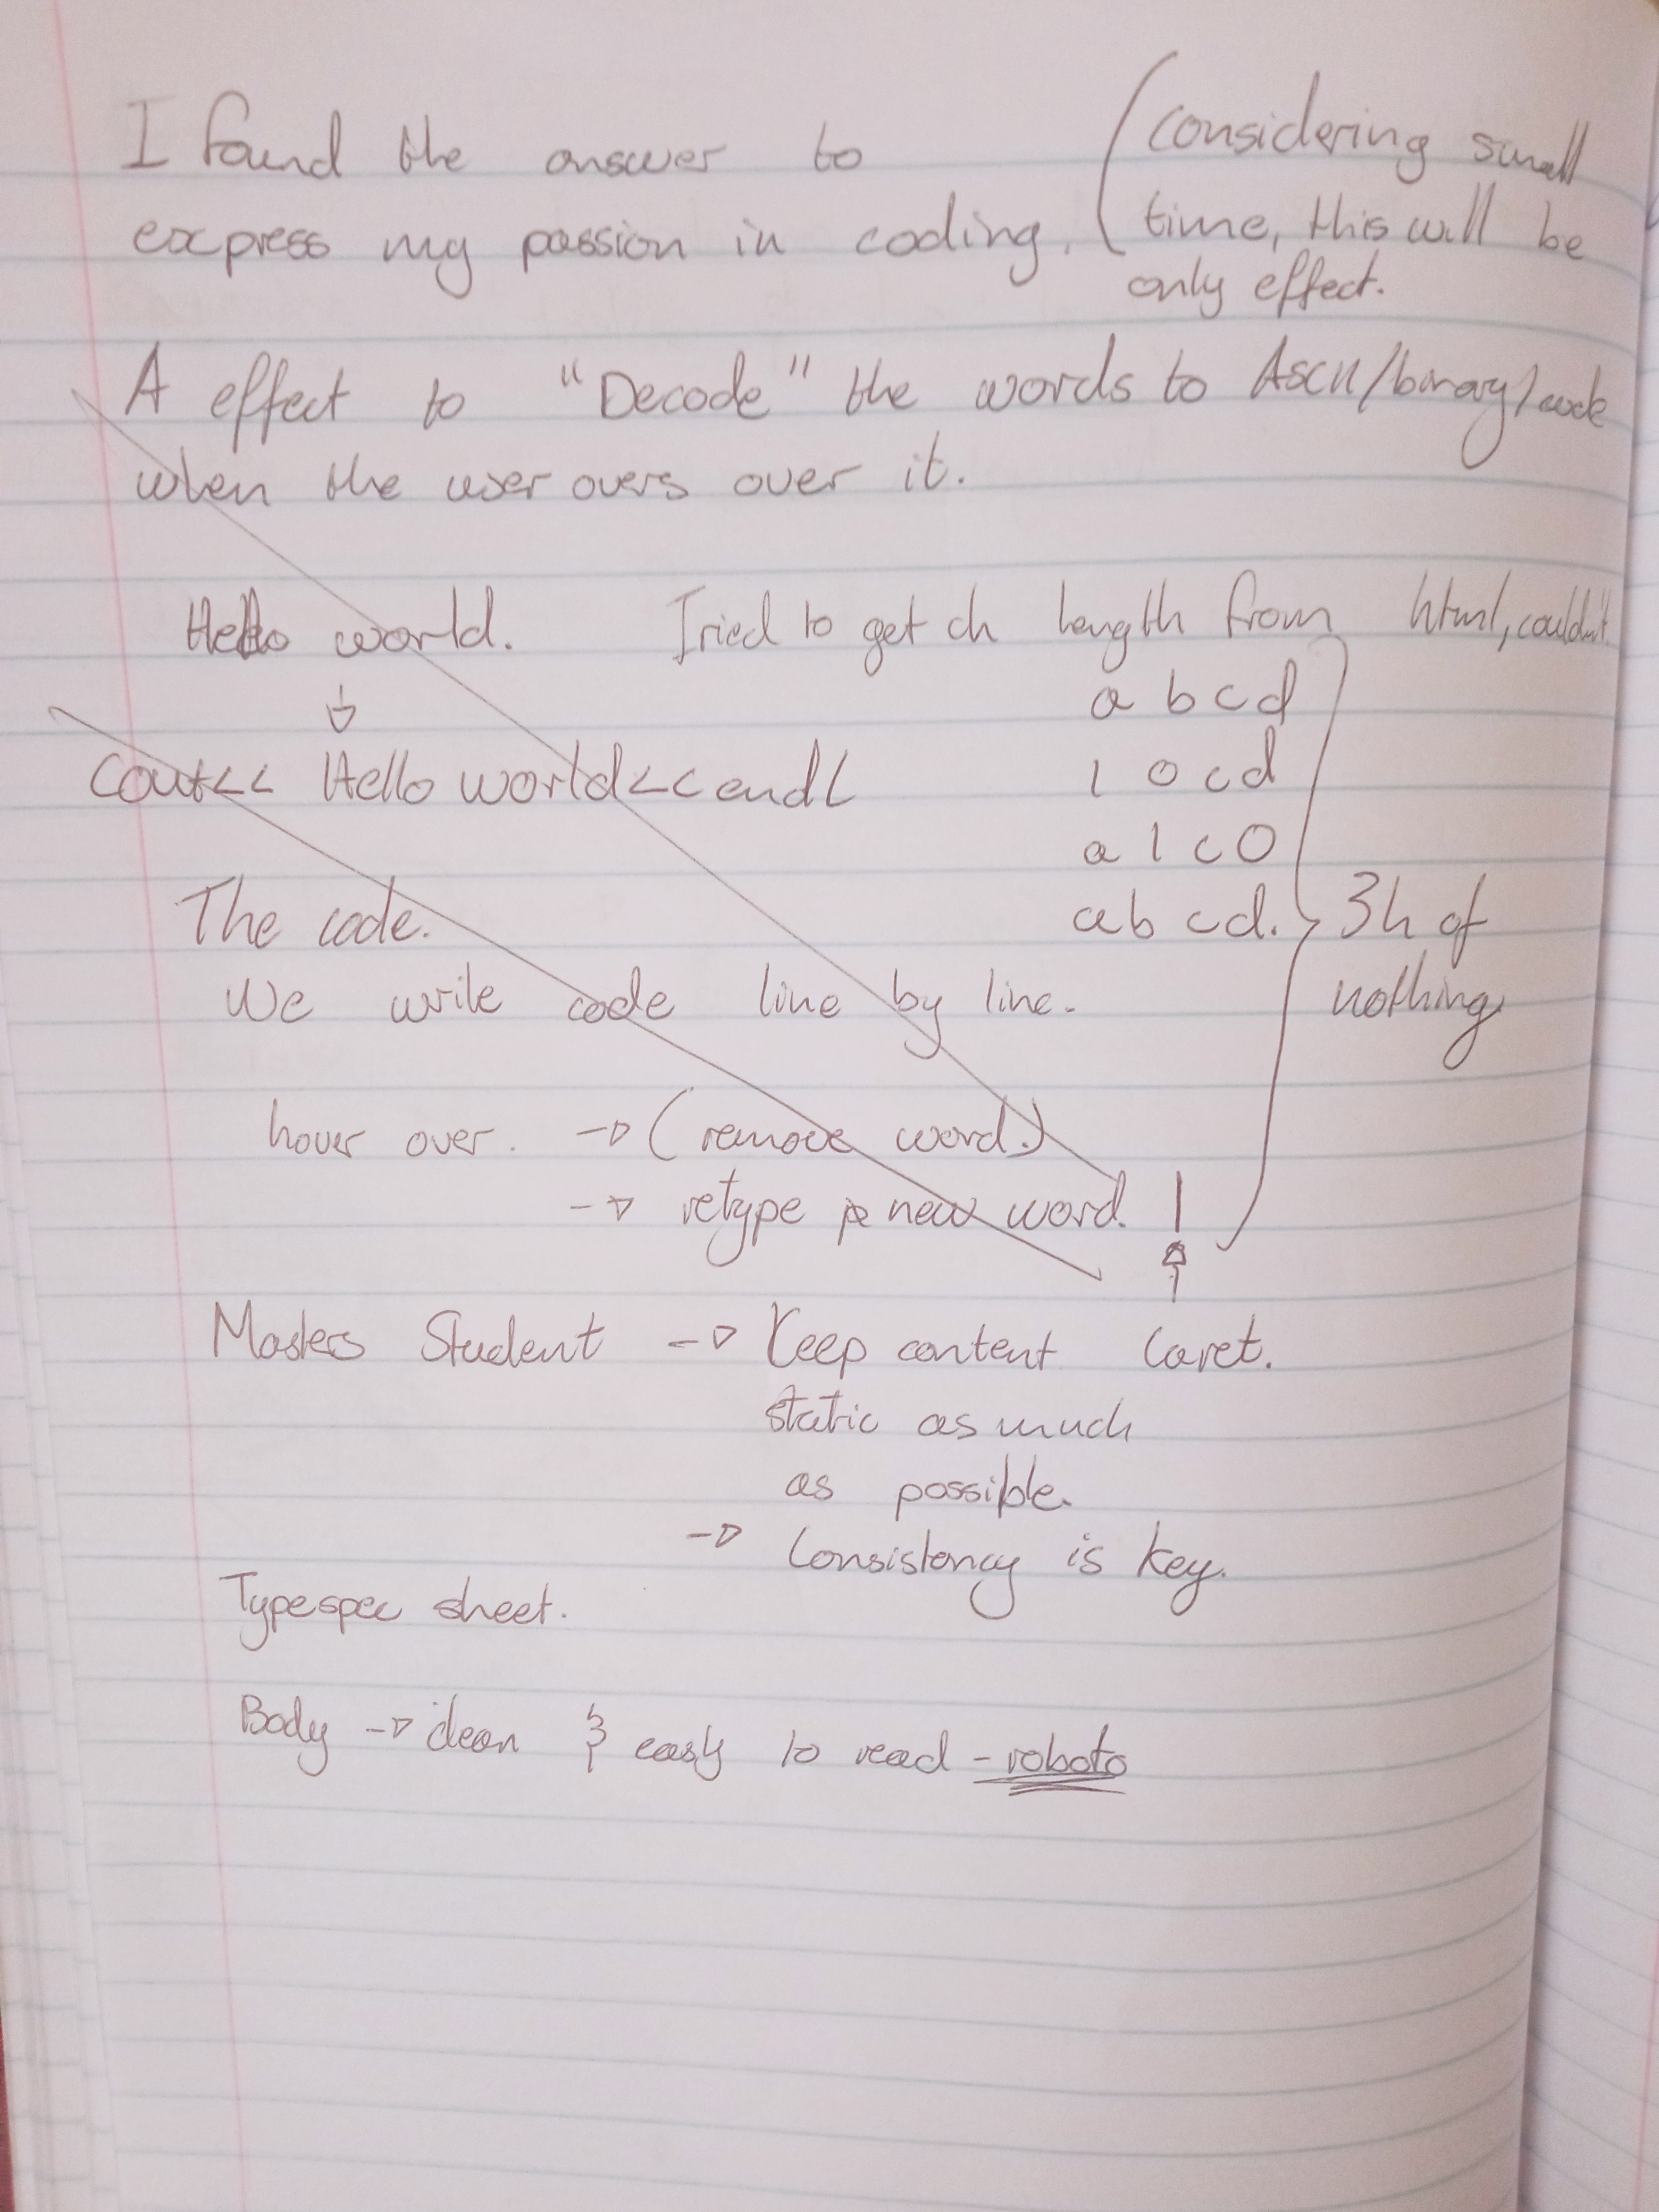 I found the answer to
express my passion in coding.
(considering small
time, this will be
only effect.
A effect to "Decode" the words to Ascii/binary/code
when the user overs over it.
Hello world.
Tried to get ch length from html, couldn't.
a b c d
1 0 c d
a 1 c 0
a b c d.
3h of
nothing.
Cout<< Hello world<<endl
The code.
We write code line by line.
hover over. → (remove word.)
→ retype new word. |
↑
Caret.
Masters Student → Keep content
static as much
as possible.
→ Consistency is key.
Typespec sheet.
Body → clean & easy to read - roboto